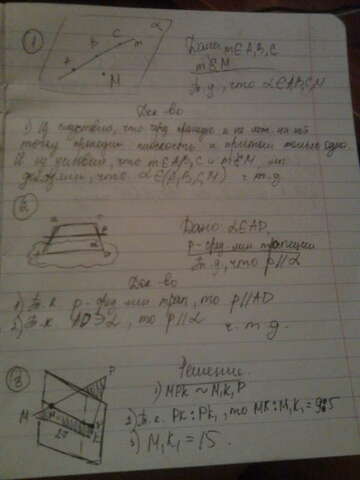 1
α
A B C m
M
Дано: m∈A,B,C
m∉M
Т.д., что α∈A,B,C,M
Док-во
1) Из следствия, что через прямую и не леж. на ней
точку проходит плоскость и притом только одна
И из условий, что m∈A,B,C и m∉M, мы
что α∈(A,B,C,M) ч.т.д.
2
Дано: α∈AD,
p-сред. лин трапеции
Т.д., что p∥α
Док-во
1) Т.к. p-сред. лин трап, то p∥AD
2) Т.к. AD∋α, то p∥α
ч.т.д.
3
P
M
27
Решение.
1) MPK ~ M₁K₁P
2) Т.к. PK:PK₁, то MK:M₁K₁=9:5
3) M₁K₁=15.